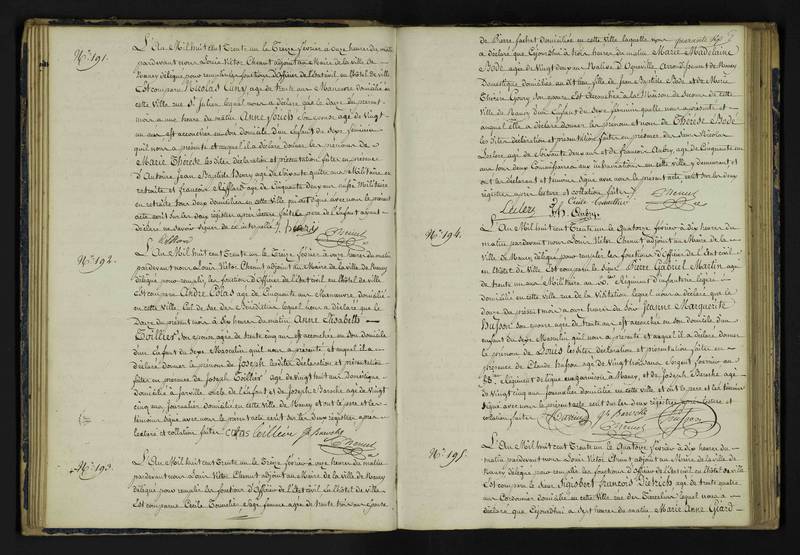 N.° 191.
L'An Mil huit cent Trente un le Treize février à onze heures du matin
pardevant nous Louis Victor Chenut adjoint au Maire de la ville de
Nancy délégué pour remplir les fonctions d'officier de l'état civil en l'hôtel de ville
Est comparu Nicolas Cuny agé de trente ans Manœuvre domicilié en
cette Ville rue St. Julien lequel nous a déclaré que le douze du présent
mois à une heure du matin Anne son épouse agée de vingt
un ans est accouchée en son domicile d'un Enfant du Sexe féminin
qu'il nous a présenté et auquel il a déclaré donner les prénoms de
Marie Thérèse les dites déclaration et présentation faites en présence
d'Antoine Jean Baptiste Henry agé de soixante quatre ans Militaire en
retraite et François agé de Cinquante deux ans Militaire
en retraite tous deux domiciliés en cette ville qui ont signé avec nous le présent
acte écrit sur les deux registres après lecture faite le père de l'enfant ayant
déclaré ne savoir signer de ce interpellé
N.° 192.
L'An Mil huit cent Trente un le Treize février à onze heures du matin
pardevant nous Louis Victor Chenut adjoint au Maire de la ville de Nancy
délégué pour remplir les fonctions d'officier de l'état civil en l'hôtel de ville
Est comparu André Colas agé de Cinquante ans Manœuvre domicilié
en cette Ville lequel nous a déclaré que le
Douze du présent mois à six heures du matin Anne Elisabeth
Toillier son épouse agée de trente cinq ans est accouchée en son domicile
d'un Enfant du Sexe Masculin qu'il nous a présenté et auquel il a
déclaré donner le prénom de Joseph les dites déclaration et présentation
faites en présence de Joseph Toillier agé de vingt huit ans Domestique
domicilié à oncle de l'enfant et de Joseph Barache agé de vingt
cinq ans, journalier domicilié en cette ville de Nancy et ont le père et les
témoins signé avec nous le présent acte écrit sur les deux registres après
lecture et collation faites Colas Toillier J.h Barache Chenut
N.° 193.
L'An Mil huit cent Trente un le Treize février à onze heures du matin
pardevant nous Louis Victor Chenut adjoint au Maire de la ville de Nancy
délégué pour remplir les fonctions d'officier de l'état civil en l'hôtel de ville
Est comparue Cécile Tonnelier Sage femme agée de trente trois ans épouse
de Pierre domiciliée en cette ville laquelle nous
a déclaré que cejourdhui à trois heures du matin Marie Madelaine
Bodé agée de vingt deux ans Native d'Ogneville Arrondissement de Nancy
Domestique domiciliée au dit lieu fille de Jean Baptiste Bodé et de Marie
Thérèse son épouse est accouchée à la Maison de Secours de cette
ville de Nancy d'un Enfant du Sexe féminin qu'elle nous a présenté et
auquel elle a déclaré donner les prénom et nom de Thérèse Bodé
les dites déclaration et présentation faites en présence du Sieur Nicolas
Leclerc agé de soixante deux ans et de François Aubry agé de Cinquante un
ans tous deux Commissaires aux inhumations en cette ville y demeurant et
ont les déclarant et témoins signé avec nous le présent acte écrit sur les deux
registres après lecture et collation faites
Leclerc Cécile Tonnelier Chenut
Aubry
N.° 194.
L'An Mil huit cent Trente un le Quatorze février à dix heures du
matin pardevant nous Louis Victor Chenut adjoint au Maire de la
Ville de Nancy délégué pour remplir les fonctions d'officier de l'état civil
en l'hôtel de Ville Est comparu le Sieur Pierre Gabriel Martin agé
de trente un ans Militaire au Régiment d'infanterie légère
domicilié en cette ville rue de la Visitation lequel nous a déclaré que le
douze du présent mois à onze heures du soir Jeanne Marguerite
Husson son épouse agée de trente un ans est accouchée en son domicile d'un
enfant du Sexe Masculin qu'il nous a présenté et auquel il a déclaré donner
le prénom de Louis les dites déclaration et présentation faites en
présence de Claude Husson agé de vingt trois ans Sergent fourrier au
Régiment de ligne en garnison à Nancy, et de Joseph Barache agé
de vingt cinq ans journalier domicilié en cette ville, et ont le père et les témoins
signé avec nous le présent acte écrit sur les deux registres après lecture et
collation faites Martin J.h Barache Husson
Chenut
N.° 195.
L'An Mil huit cent Trente un le Quatorze février à dix heures du
matin pardevant nous Louis Victor Chenut adjoint au Maire de la ville de
Nancy délégué pour remplir les fonctions d'officier de l'état civil en l'hôtel de ville
Est comparu le Sieur Sigisbert François Dietrich agé de trente quatre
ans Cordonnier domicilié en cette Ville rue des lequel nous a
déclaré que cejourdhui à sept heures du matin, Marie Anne Giard